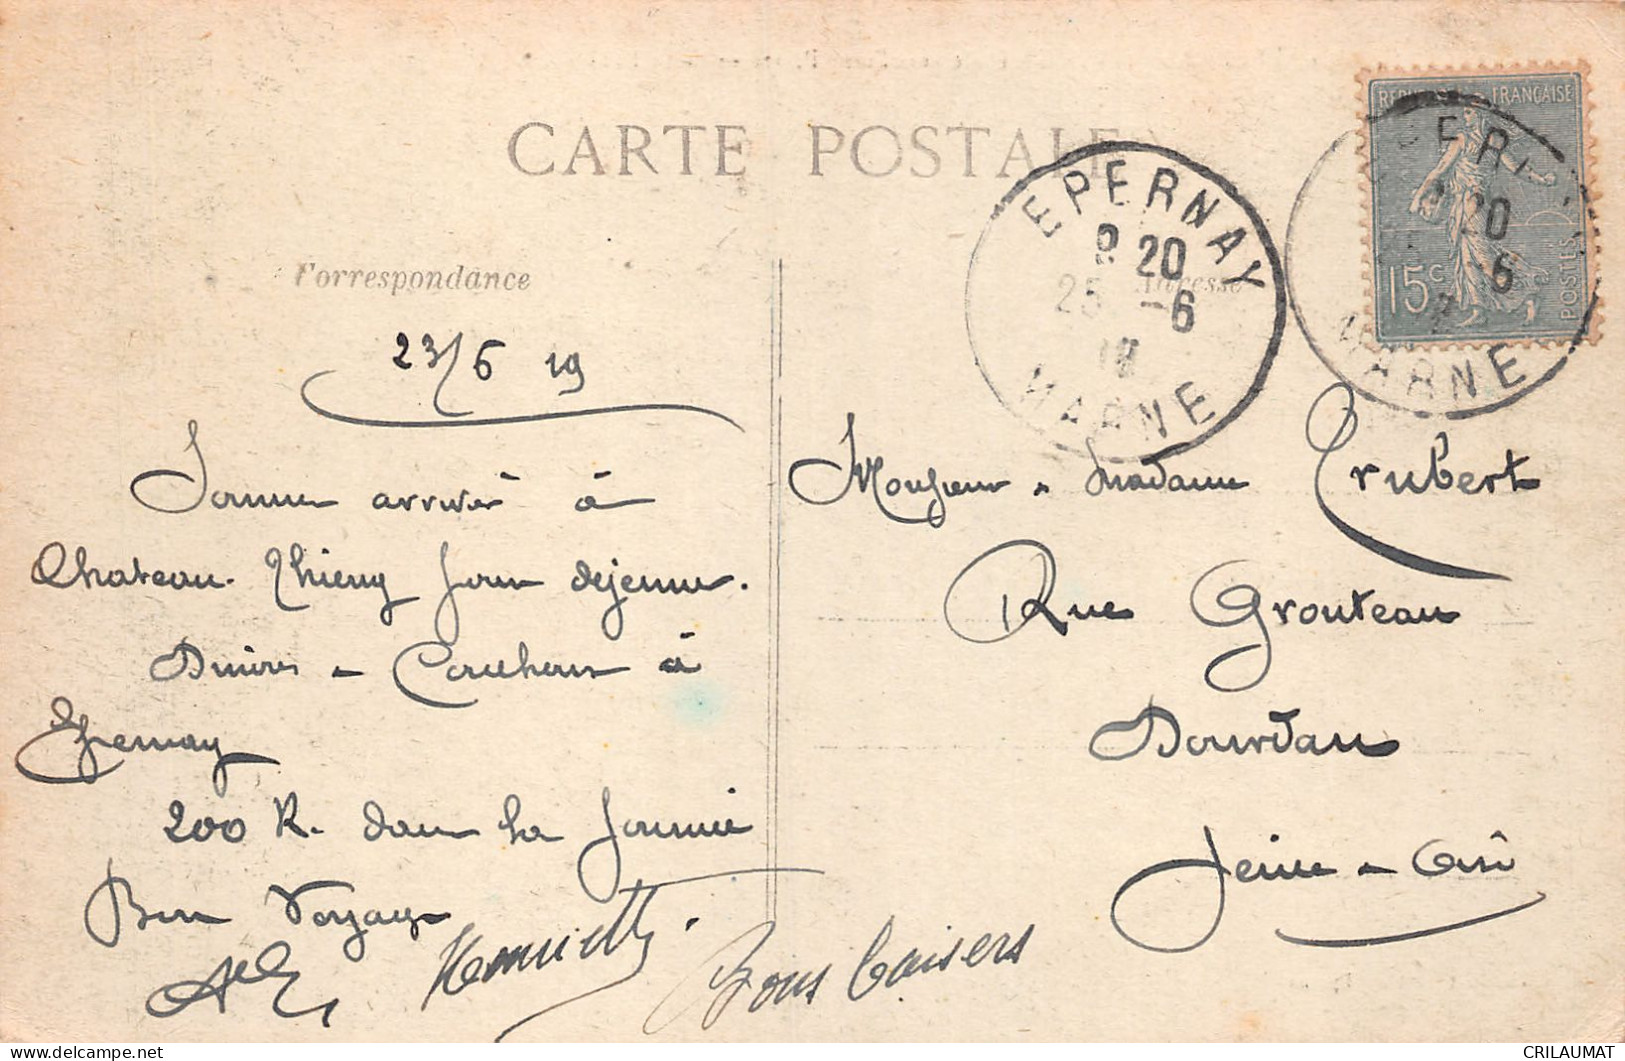 CARTE POSTALE
Correspondance
Adresse
EPERNAY
20
25 -6
19
MARNE
REPUBLIQUE FRANÇAISE
15c
POSTES
20
-6
MARNE
23/6 19
Sommes arrivés à
Chateau-Thierry pour déjeuner.
Dinons - Couchons à
Epernay
200 K. dans la Journée
Bon Voyage
Henriette
Bons baisers
Monsieur & Madame Trubert
Rue Grouteau
Dourdan
Seine & Oise
CRILAUMAT